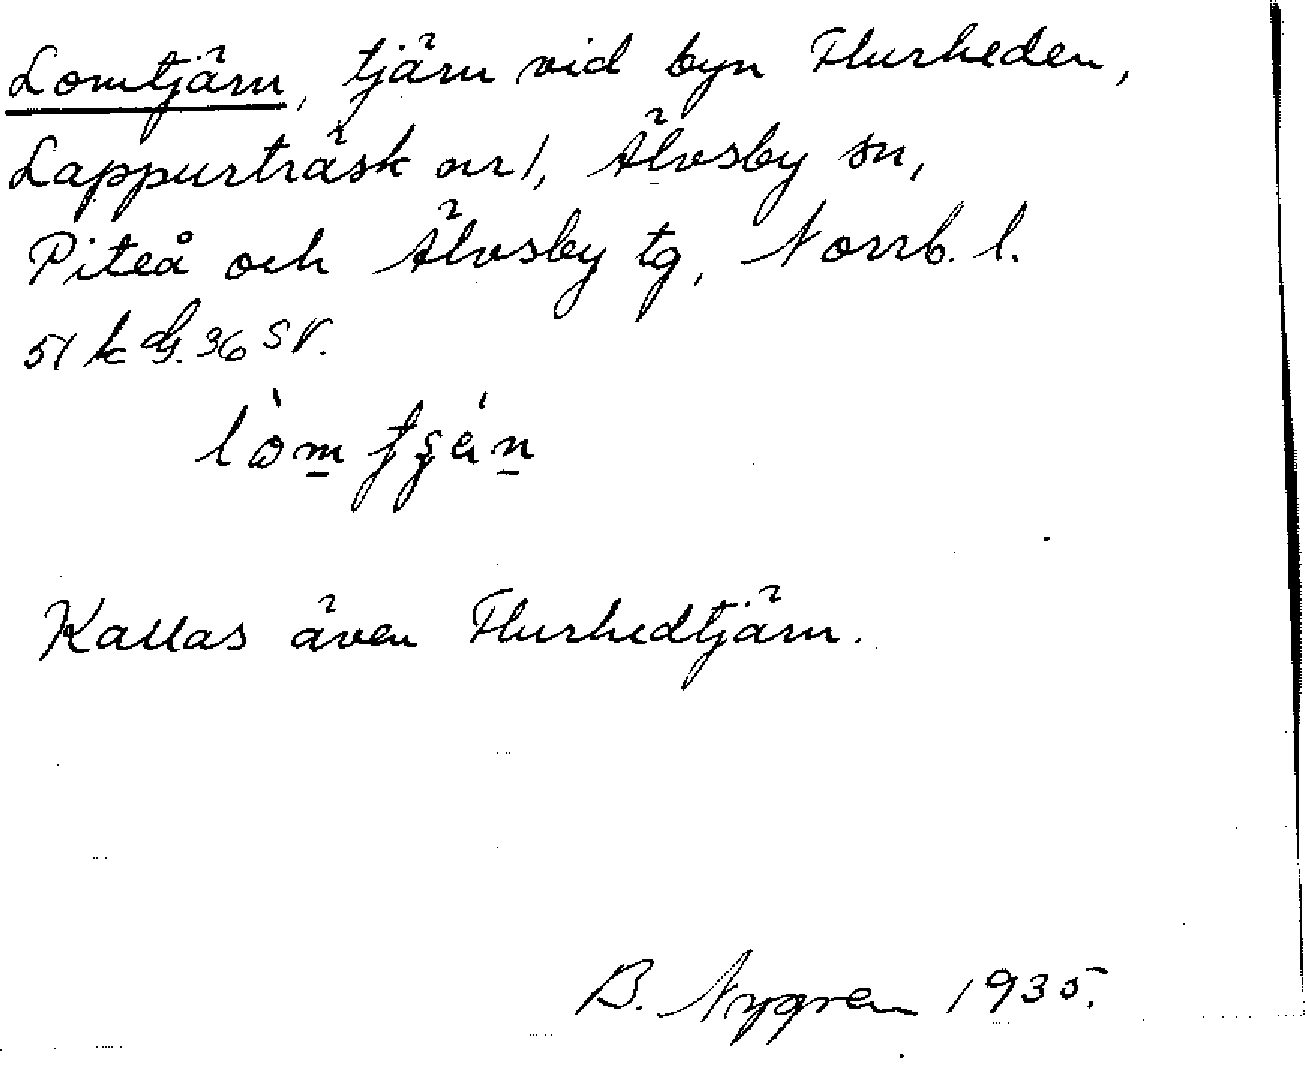 Lomtjärn, tjärn vid byn Flurheden,
Lappurträsk nr 1, Älvsby sn,
Piteå och Älvsby tg, Norrb. l.
51 k 36 SV.
Kallas även Flurhedtjärn.
B. Nygren 1935.